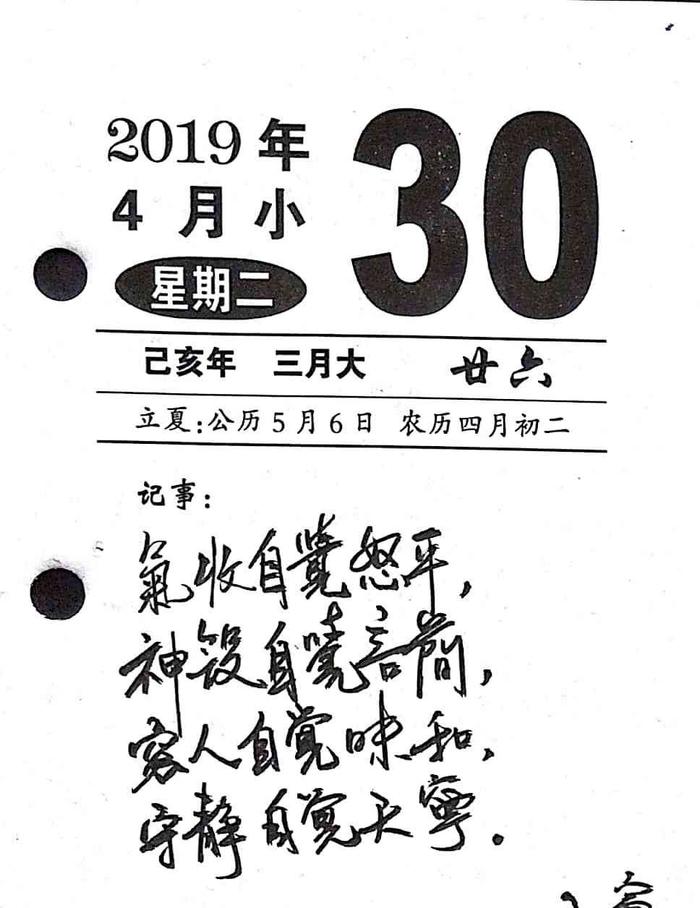 2019年
4月小
星期二
30
己亥年 三月大 廿六
立夏:公历5月6日 农历四月初二
记事:
氣收自覺怒平,
神敛自覺言简,
容人自觉味和,
守静自觉天寧。